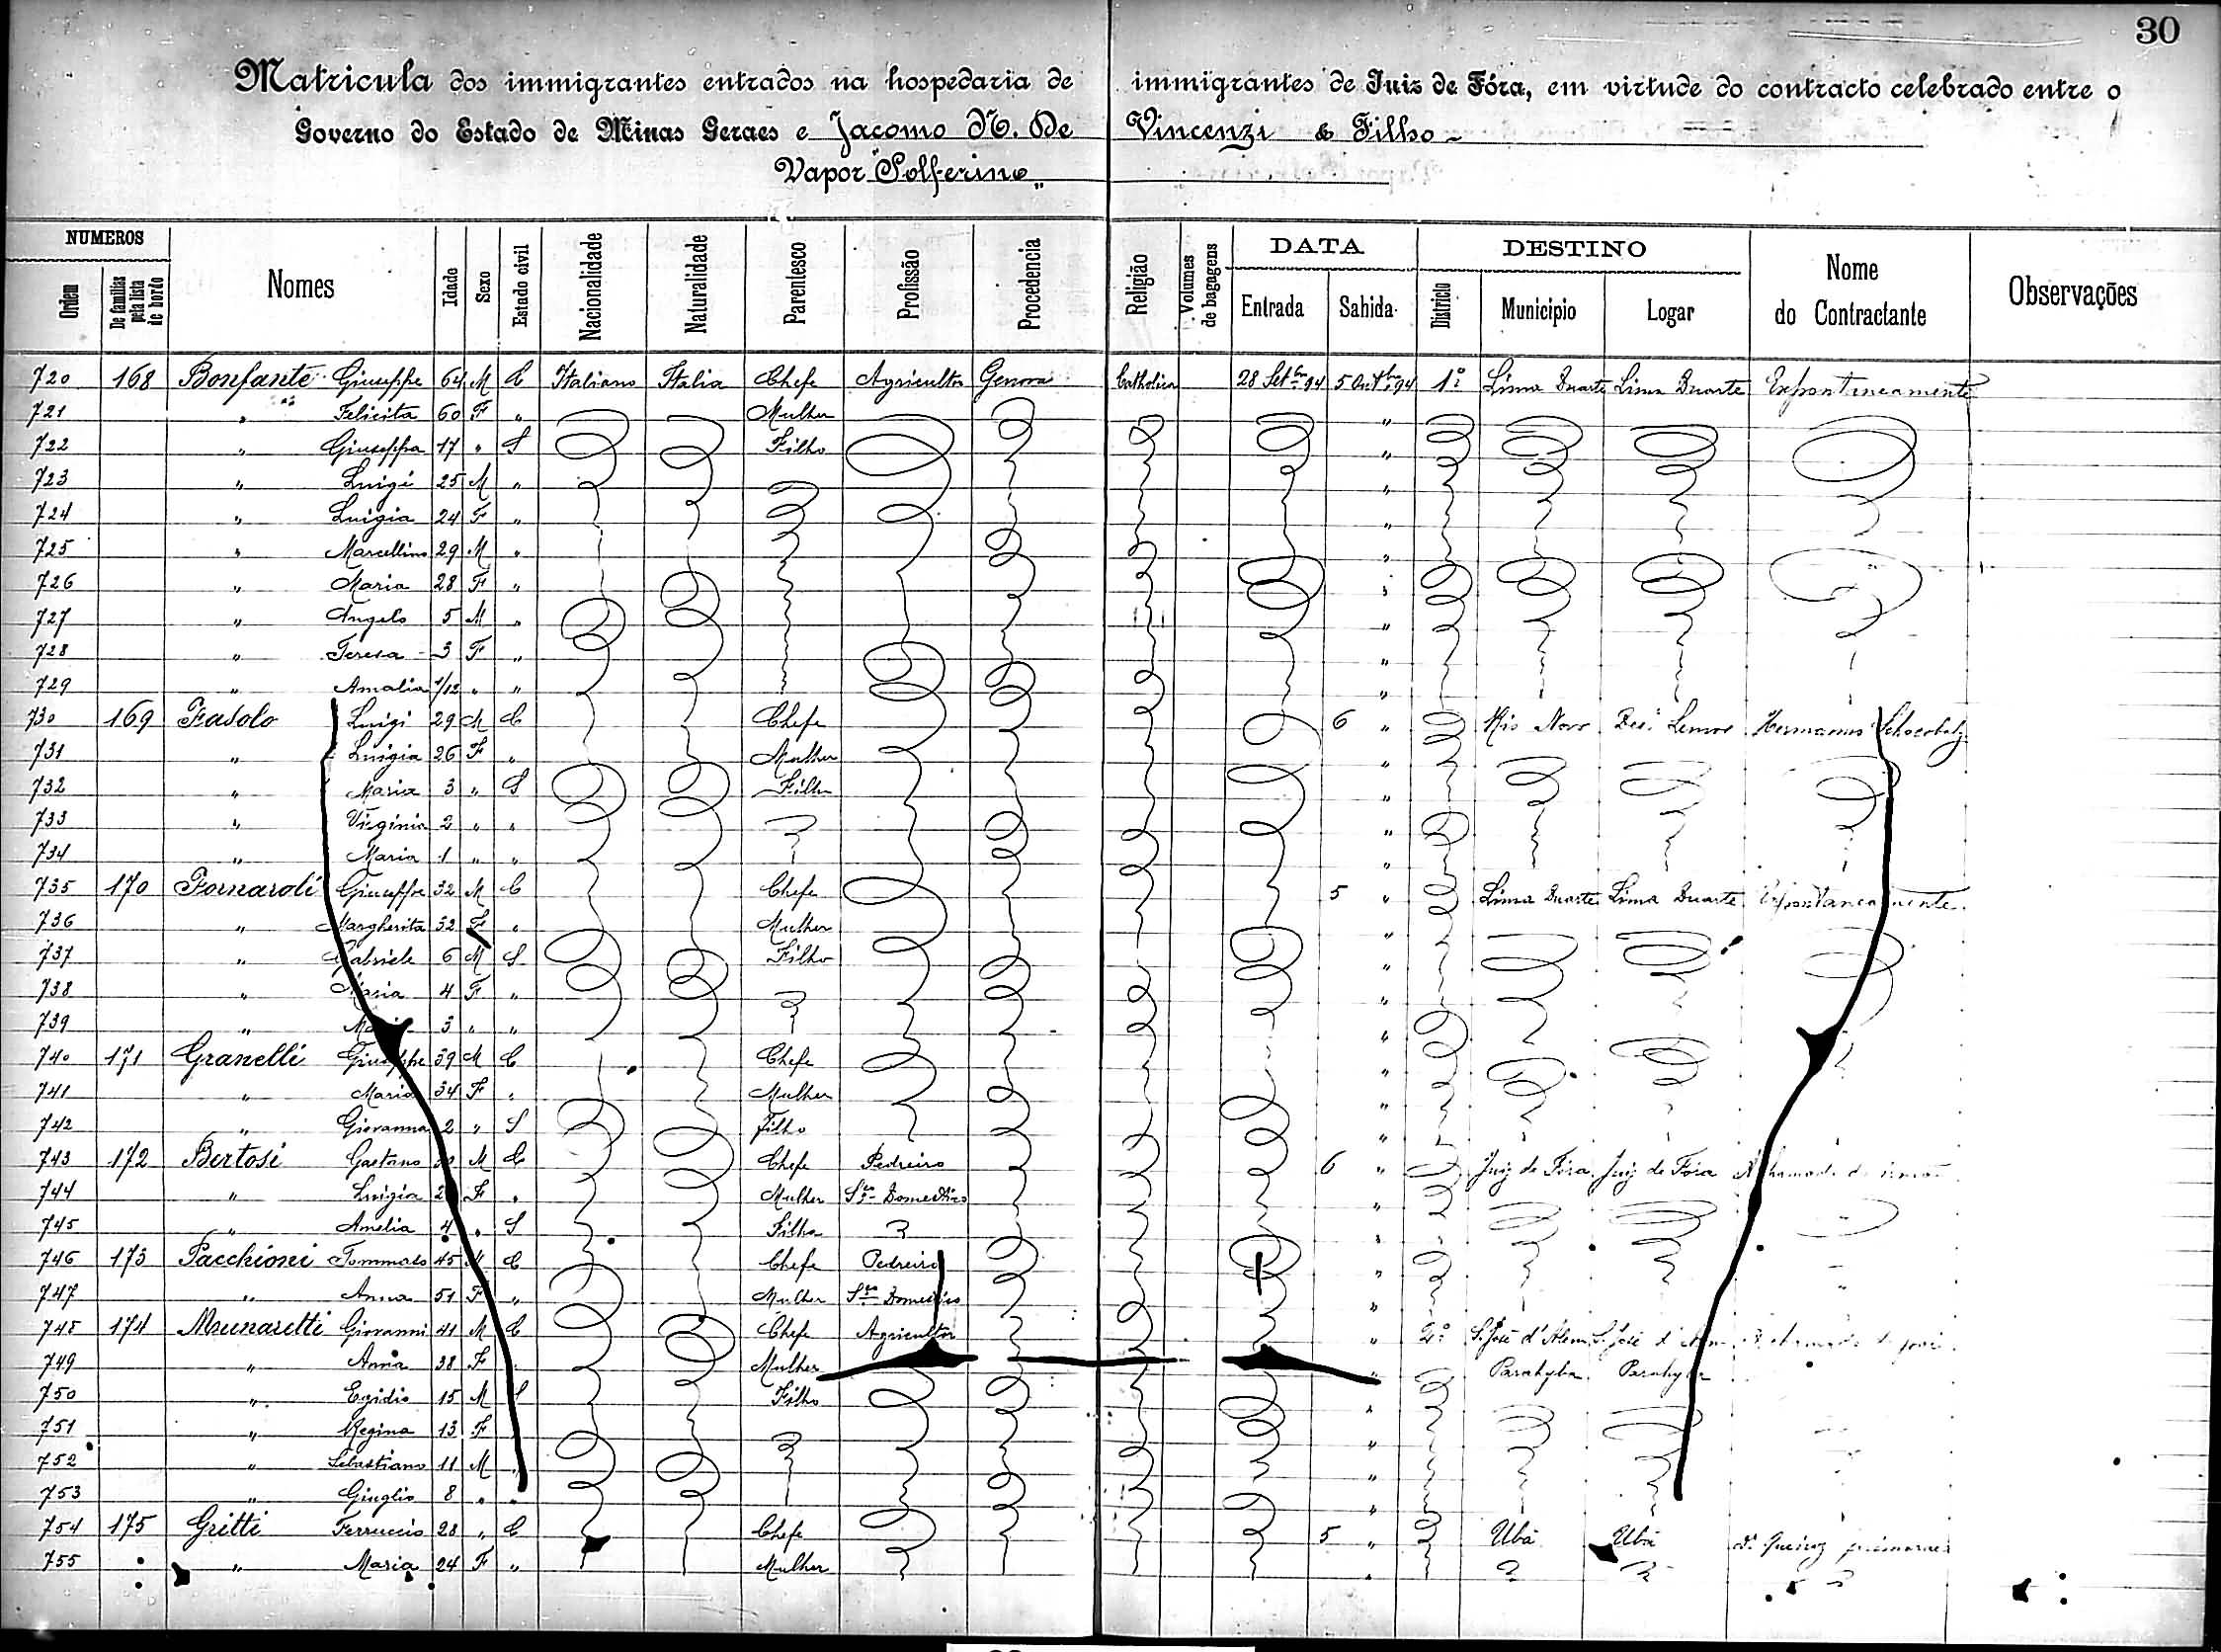 30
Matricula dos immigrantes entrados na hospedaria de immigrantes de Juiz de Fóra, em virtude do contracto celebrado entre o
Governo do Estado de Minas Geraes e Jacomo N. De Vincenzi & Filho
Vapor "Solferino"
NUMEROS DATA DESTINO
Ordem De familias pela lista de bordo Nomes Idade Sexo Estado civil Nacionalidade Naturalidade Parentesco Profissão Procedencia Religião Volumes de bagagens Entrada Sahida Districto Municipio Logar Nome do Contractante Observações
720 168 Bonfante Giuseppe 64 M C Italiano Italia Chefe Agricultor Genova Catholica 28 Setbro 94 5 Outbro 94 1º Lima Duarte Lima Duarte Expontaneamente
721 " Felicita 60 F " Mulher "
722 " Giuseppa 17 " S Filho "
723 " Luigi 25 M " "
724 " Luigia 24 F " "
725 " Marcellino 29 M " "
726 " Maria 28 F " "
727 " Angelo 5 M " "
728 " Teresa 3 F " "
729 " Amalia 1/12 " " "
730 169 Fasolo Luigi 29 M C Chefe 6 " Rio Novo Lemos Hermanus
731 " Luigia 26 F " Mulher "
732 " Maria 3 " S Filha "
733 " Virginia 2 " " "
734 " Maria 1 " " "
735 170 Fornaroli Giuseppe 32 M C Chefe 5 " Lima Duarte Lima Duarte Expontaneamente
736 " Margherita 32 F " Mulher "
737 " Gabriele 6 M S Filho "
738 " Maria 4 F " "
739 " 3 " " "
740 171 Granelli Giuseppe 39 M C Chefe "
741 " Maria 34 F " Mulher "
742 " Giovanna 2 " S Filho "
743 172 Bertosi Gaetano M C Chefe Pedreiro 6 " Juiz de Fóra Juiz de Fóra A chamado de irmão
744 " Luigia F " Mulher Sços Domesticos "
745 " Amelia 4 " S Filha "
746 173 Pacchioni Tommaso 45 M C Chefe Pedreiro "
747 " Anna 51 F " Mulher Sços Domesticos "
748 174 Munaretti Giovanni 41 M C Chefe Agricultor " 2º S. José d'Alem S. José d'Alem
749 " Anna 38 F Mulher " Parahyba Parahyba
750 " Egidio 15 M S Filho "
751 " Regina 13 F "
752 " Sebastiano 11 M "
753 " Giuglio 8 " " "
754 175 Gritti Ferruccio 28 " C Chefe 5 " Ubá Ubá Dr Queiroz
755 " Maria 24 F " Mulher "